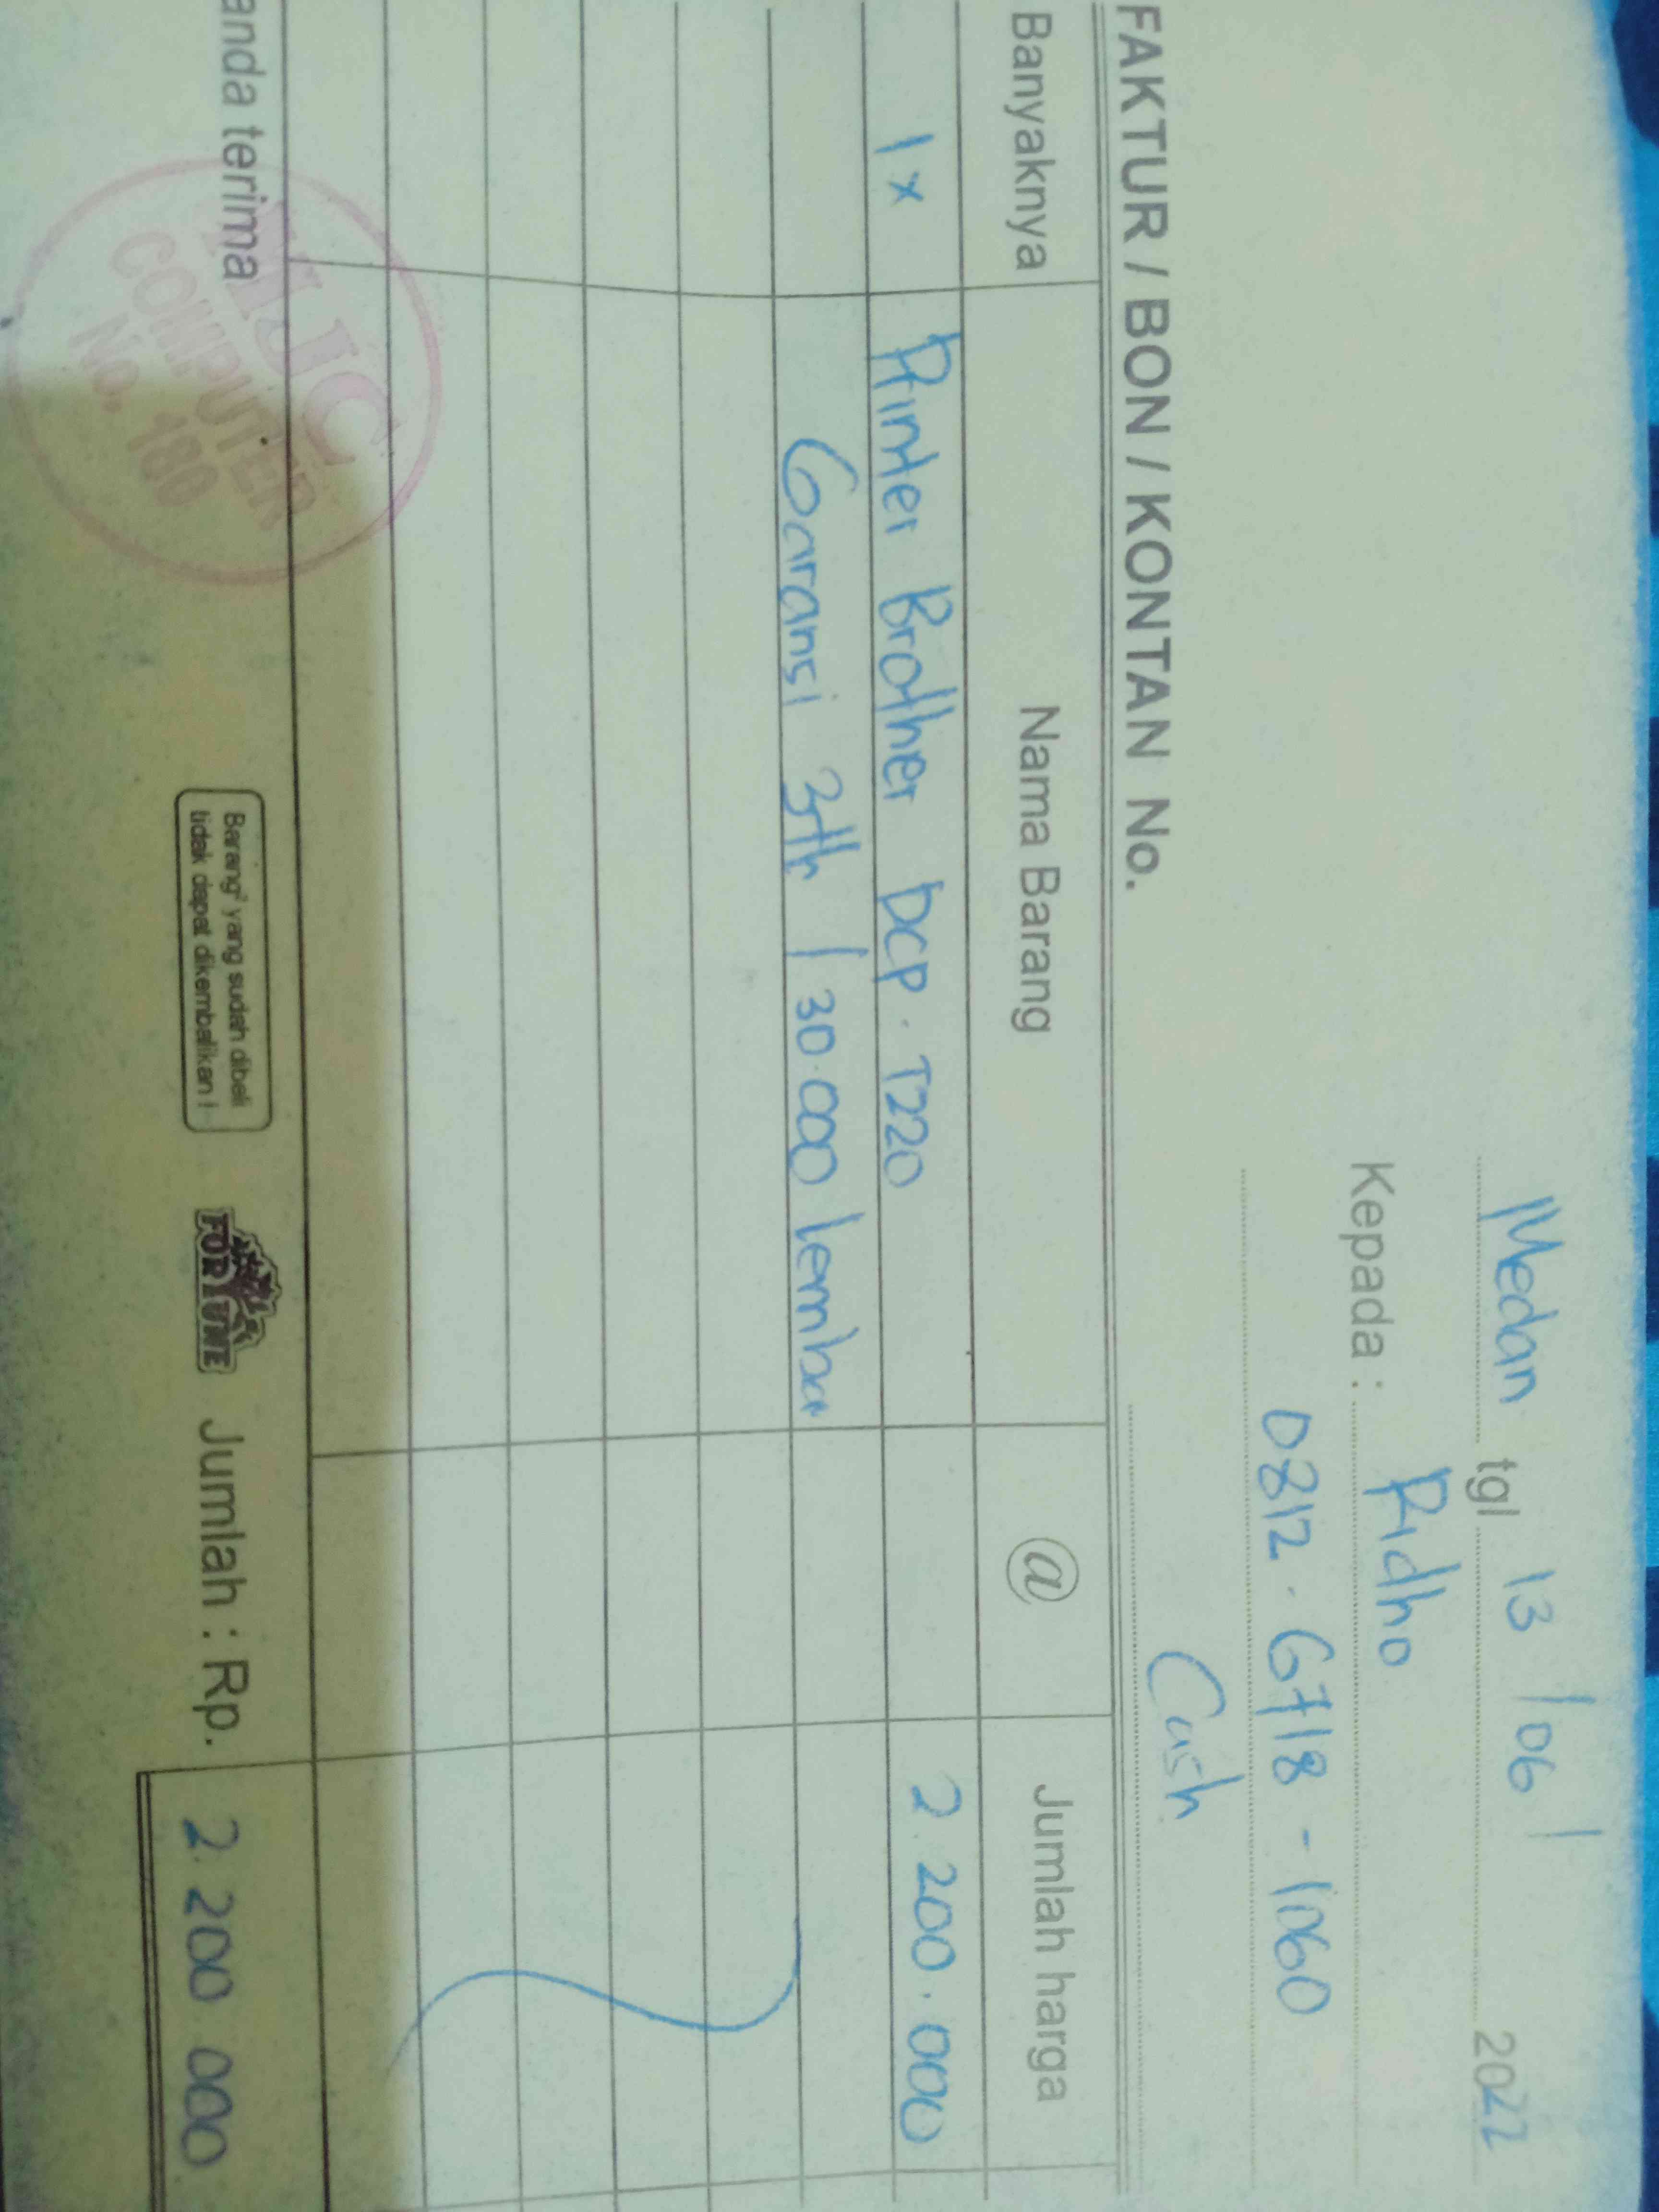 Medan tgl 13 / 06 / 2022
Kepada : Ridho
0812 . 6718 - 1060
Cash
FAKTUR / BON / KONTAN No.
Banyaknya Nama Barang @ Jumlah harga
1 x Printer Brother DCP . T220 2.200.000
Garansi 3th / 30.000 lembar
anda terima
COMPUTER
No. 180
Barang² yang sudah dibeli
tidak dapat dikembalikan !
FORTUNE
Jumlah : Rp. 2.200 000